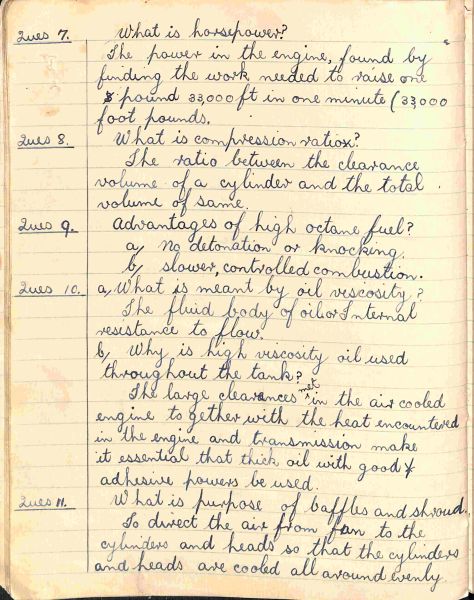 Ques 7. What is horsepower?
The power in the engine, found by
finding the work needed to raise one
pound 33,000 ft in one minute (33,000
foot pounds.
Ques 8. What is compression ratio?
The ratio between the clearance
volume of a cylinder and the total
volume of same.
Ques 9. Advantages of high octane fuel?
a, No detonation or knocking.
b, slower, controlled combustion.
Ques 10. a, What is meant by oil viscosity?
The fluid body of oil or Internal
resistance to flow.
b, Why is high viscosity oil used
throughout the tank?
The large clearances met in the air cooled
engine together with the heat encountered
in the engine and transmission make
it essential that thick oil with good
adhesive powers be used.
Ques 11. What is purpose of baffles and shroud.
To direct the air from fan to the
cylinders and heads so that the cylinders
and heads are cooled all around evenly.